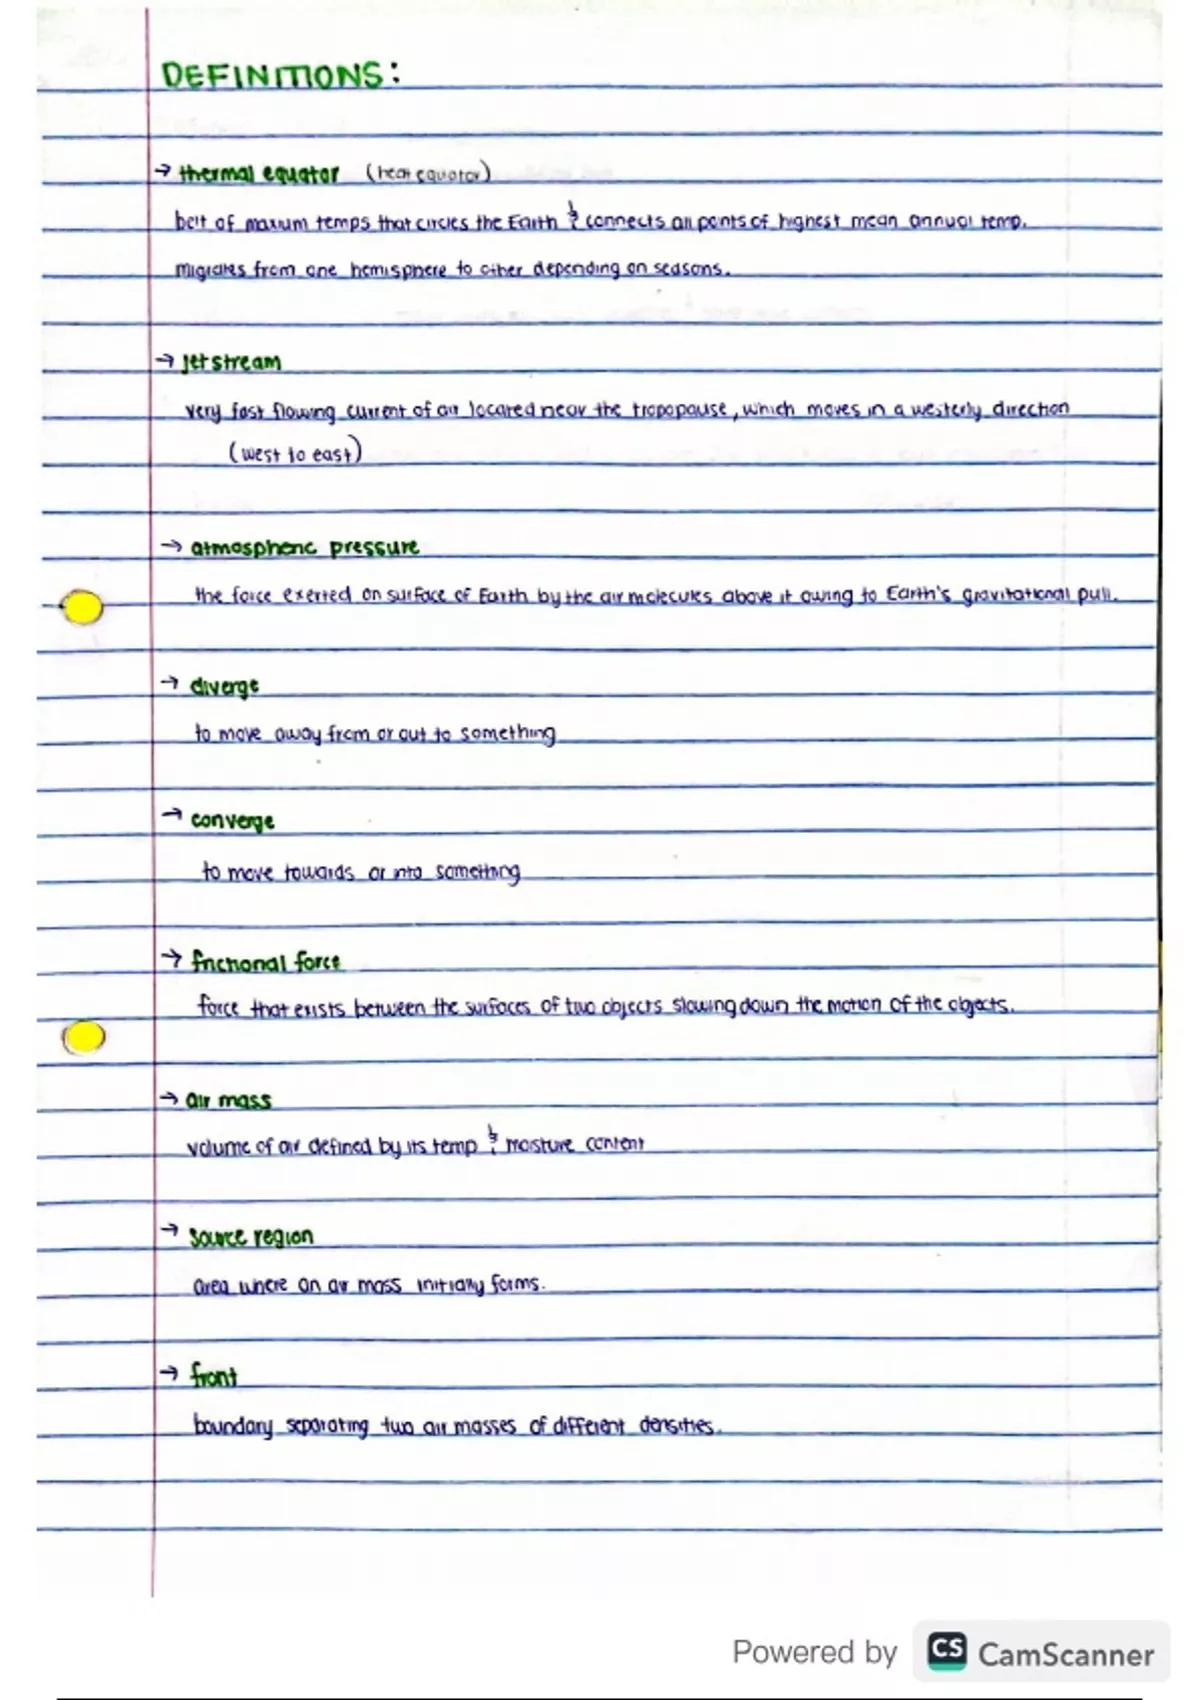 DEFINITIONS:
→ thermal equator (heat equator)
belt of maxium temps that circles the Earth & connects all points of highest mean annual temp.
migrates from one hemisphere to other depending on seasons.
→ jet stream
very fast flowing current of air located near the tropopause, which moves in a westerly direction
(west to east)
→ atmospheric pressure
the force exerted on surface of Earth by the air molecules above it owing to Earth's gravitational pull.
→ diverge
to move away from or out to something
→ converge
to move towards or into something
→ frictional force
force that exists between the surfaces of two objects slowing down the motion of the objects.
→ air mass
volume of air defined by its temp & moisture content
→ source region
area where an air mass initially forms.
→ front
boundary separating two air masses of different densities.
Powered by CS CamScanner